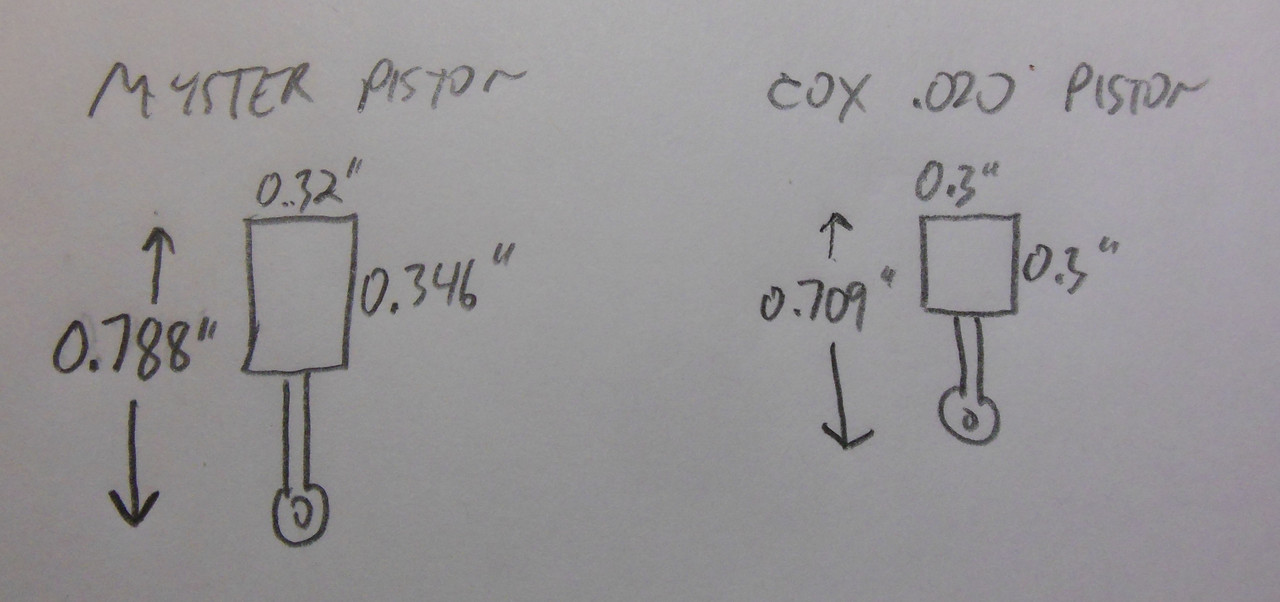 MYSTER PISTON
0.32"
0.346"
0.788"
COX .020 PISTON
0.3"
0.3"
0.709"